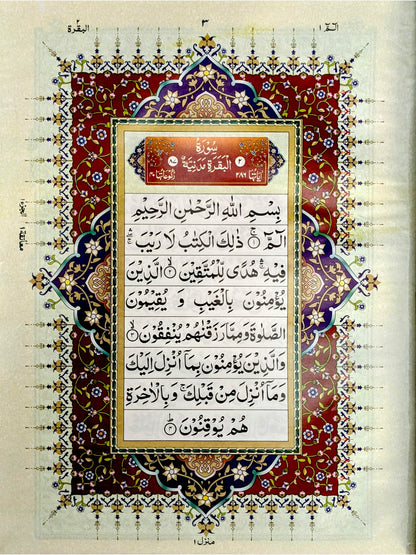 الٓمّٓ ١
٣
البقرة ٢
سُوْرَةُ
الْبَقَرَةِ مَدَنِيَّةٌ
٢
اٰيَاتُهَا ٢٨٦
رُكُوْعَاتُهَا ٤٠
بِسْمِ اللّٰهِ الرَّحْمٰنِ الرَّحِيْمِ
الٓمّٓ ۚ ١ ذٰلِكَ الْكِتٰبُ لَا رَيْبَ ۛ
فِيْهِ ۛ هُدًى لِّلْمُتَّقِيْنَ ۙ ٢ الَّذِيْنَ
يُؤْمِنُوْنَ بِالْغَيْبِ وَ يُقِيْمُوْنَ
الصَّلٰوةَ وَ مِمَّا رَزَقْنٰهُمْ يُنْفِقُوْنَ ۙ ٣
وَالَّذِيْنَ يُؤْمِنُوْنَ بِمَاۤ اُنْزِلَ اِلَيْكَ
وَمَاۤ اُنْزِلَ مِنْ قَبْلِكَ ۚ وَ بِالْاٰخِرَةِ
هُمْ يُوْقِنُوْنَ ؕ ٤
معانقة ١
منزل ١